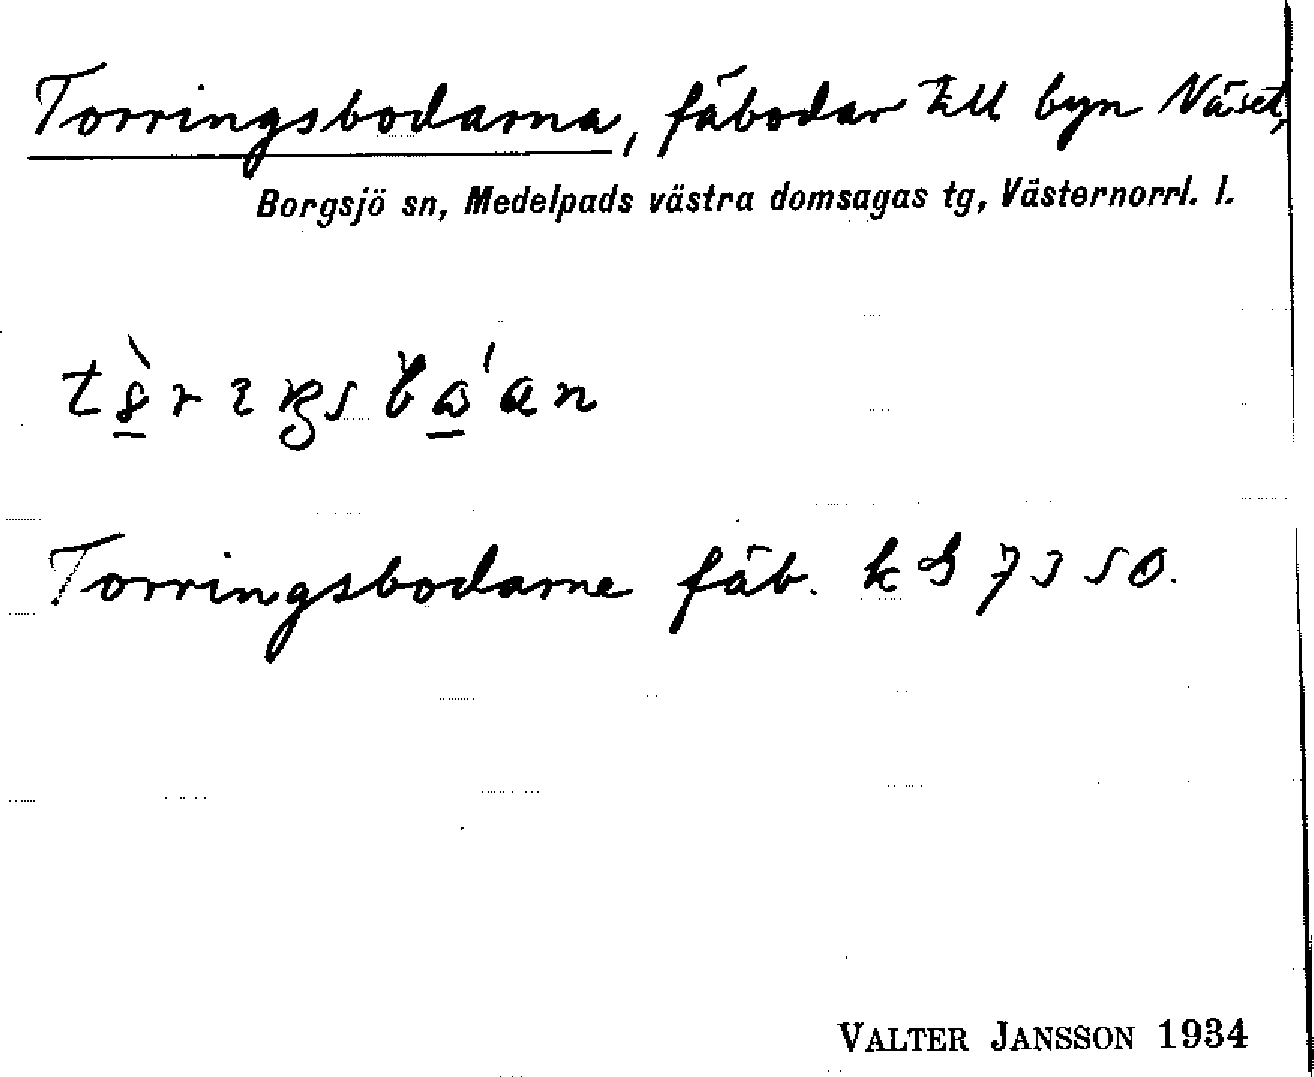 Torringsbodarna, fäbodar till byn Näset,
Borgsjö sn, Medelpads västra domsagas tg, Västernorrl. l.
Torringsbodarne fäb.
VALTER JANSSON 1934